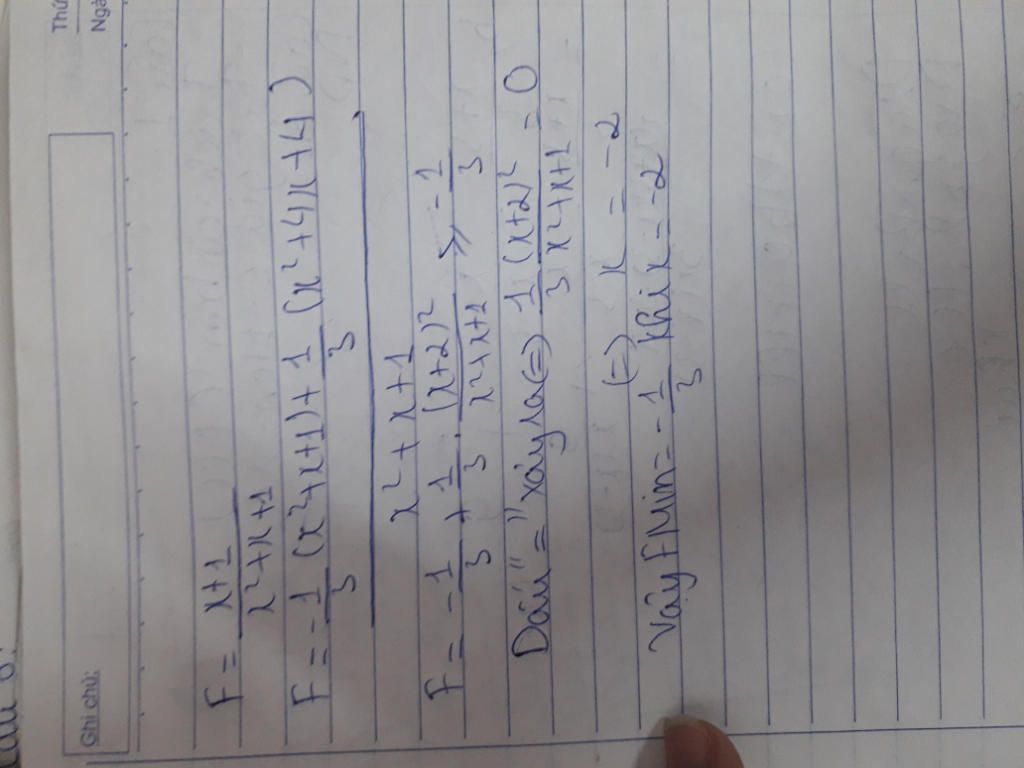 Thứ
Ngà
Ghi chú:
F = \frac{x+1}{x²+x+1}
F = \frac{-\frac{1}{3}(x²+x+1)+\frac{1}{3}(x²+4x+4)}{x²+x+1}
F = -\frac{1}{3} + \frac{1}{3} . \frac{(x+2)²}{x²+x+1} ≥ -\frac{1}{3}
Dấu "=" xảy ra <=> \frac{1}{3} \frac{(x+2)²}{x²+x+1} = 0
<=> x = -2
Vậy FMin = -\frac{1}{3} khi x = -2